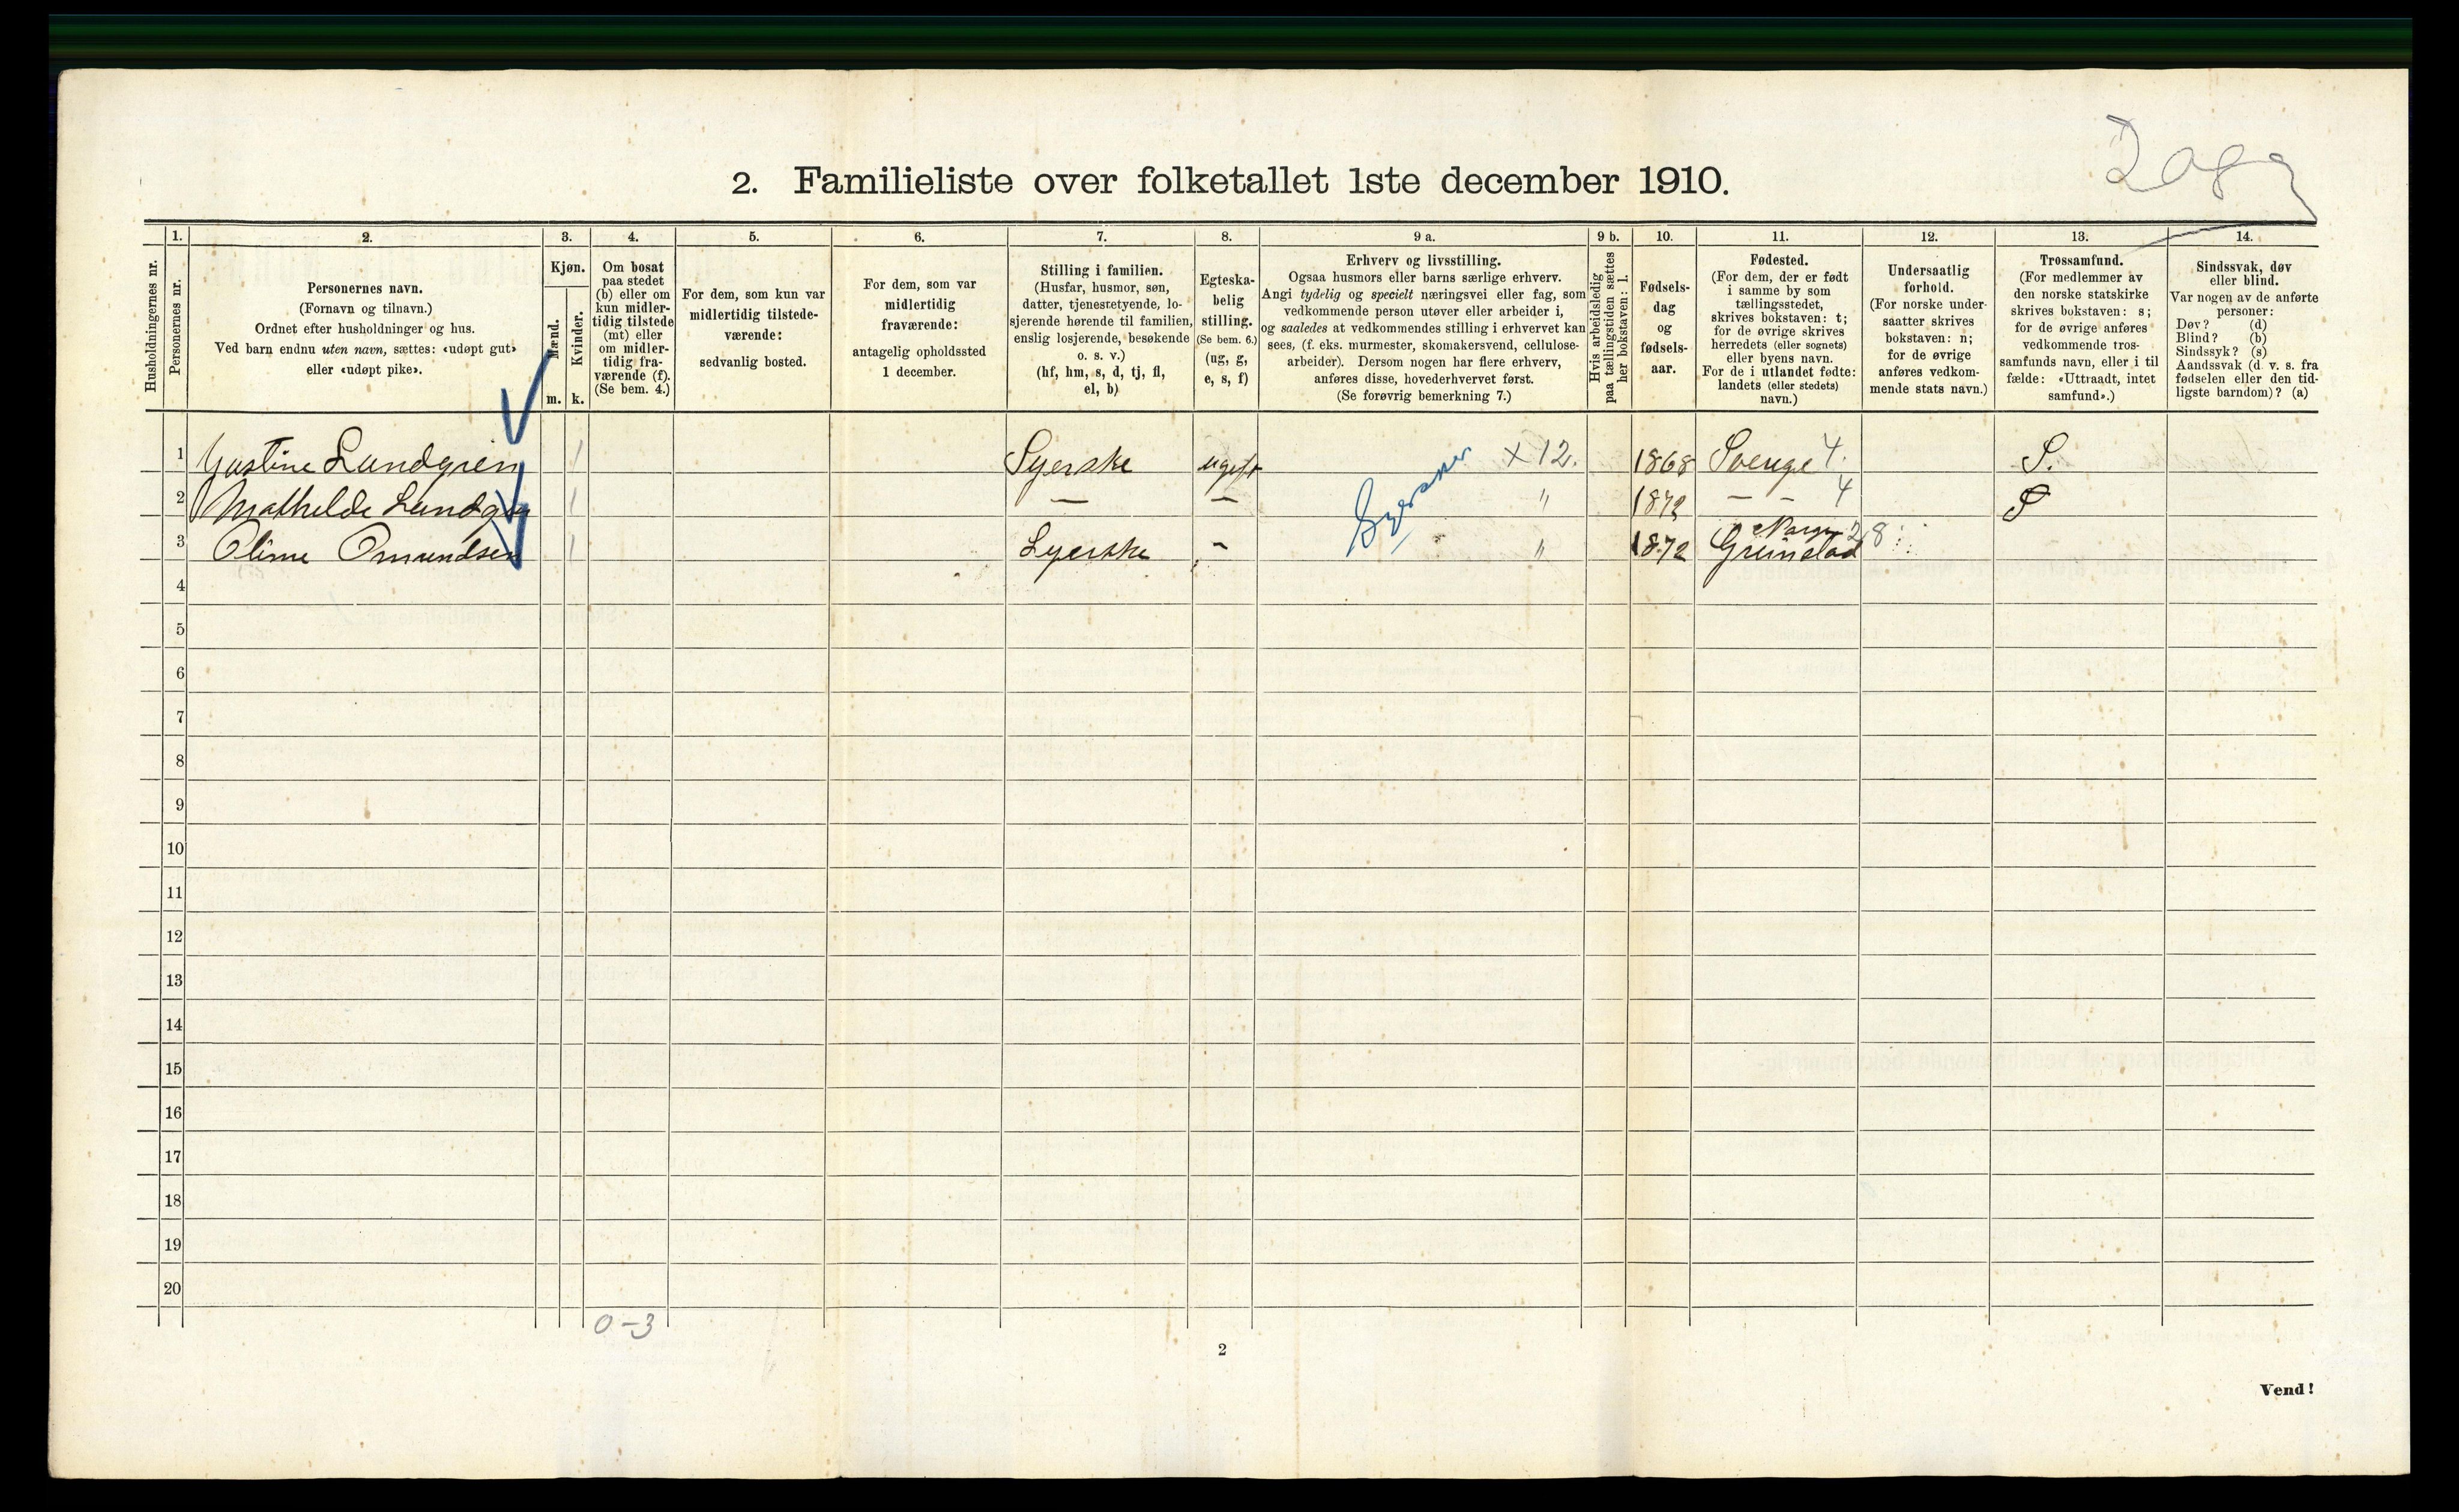 2. Familieliste over folketallet 1ste december 1910.
Husholdningernes nr.
1.
Personernes nr.
2.
Personernes navn.
(Fornavn og tilnavn.)
Ordnet efter husholdninger og hus.
Ved barn endnu uten navn, sættes: «udøpt gut»
eller «udøpt pike».
3.
Kjøn.
Mænd.
Kvinder.
m. k.
4.
Om bosat
paa stedet
(b) eller om
kun midler-
tidig tilstede
(mt) eller
om midler-
tidig fra-
værende (f).
(Se bem. 4.)
5.
For dem, som kun var
midlertidig tilstede-
værende:
sedvanlig bosted.
6.
For dem, som var
midlertidig
fraværende:
antagelig opholdssted
1 december.
7.
Stilling i familien.
(Husfar, husmor, søn,
datter, tjenestetyende, lo-
sjerende hørende til familien,
enslig losjerende, besøkende
o. s. v.)
(hf, hm, s, d, tj, fl,
el, b)
8.
Egteska-
belig
stilling.
(Se bem. 6.)
(ug, g,
e, s, f)
9 a.
Erhverv og livsstilling.
Ogsaa husmors eller barns særlige erhverv.
Angi tydelig og specielt næringsvei eller fag, som
vedkommende person utøver eller arbeider i,
og saaledes at vedkommendes stilling i erhvervet kan
sees, (f. eks. murmester, skomakersvend, cellulose-
arbeider). Dersom nogen har flere erhverv,
anføres disse, hovederhvervet først.
(Se forøvrig bemerkning 7.)
9 b.
Hvis arbeidsledig
paa tællingstiden sættes
her bokstaven: l.
10.
Fødsels-
dag
og
fødsels-
aar.
11.
Fødested.
(For dem, der er født
i samme by som
tællingsstedet,
skrives bokstaven: t;
for de øvrige skrives
herredets (eller sognets)
eller byens navn.
For de i utlandet fødte:
landets (eller stedets)
navn.)
12.
Undersaatlig
forhold.
(For norske under-
saatter skrives
bokstaven: n;
for de øvrige
anføres vedkom-
mende stats navn.)
13.
Trossamfund.
(For medlemmer av
den norske statskirke
skrives bokstaven: s;
for de øvrige anføres
vedkommende tros-
samfunds navn, eller i til
fælde: «Uttraadt, intet
samfund».)
14.
Sindssvak, døv
eller blind.
Var nogen av de anførte
personer:
Døv? (d)
Blind? (b)
Sindssyk? (s)
Aandssvak (d. v. s. fra
fødselen eller den tid-
ligste barndom)? (a)
1 Gustine Lundgren 1 Syerske ugift X 12. 1868 Sverige 4. S.
2 Mathilde Lundgren 1 — — " 1872 — — 4 S
Syersker
3 Oline Omundsen 1 Syerske - " 1872 Norge Grimstad 28
4
5
6
7
8
9
10
11
12
13
14
15
16
17
18
19
20
0-3
2
Vend!